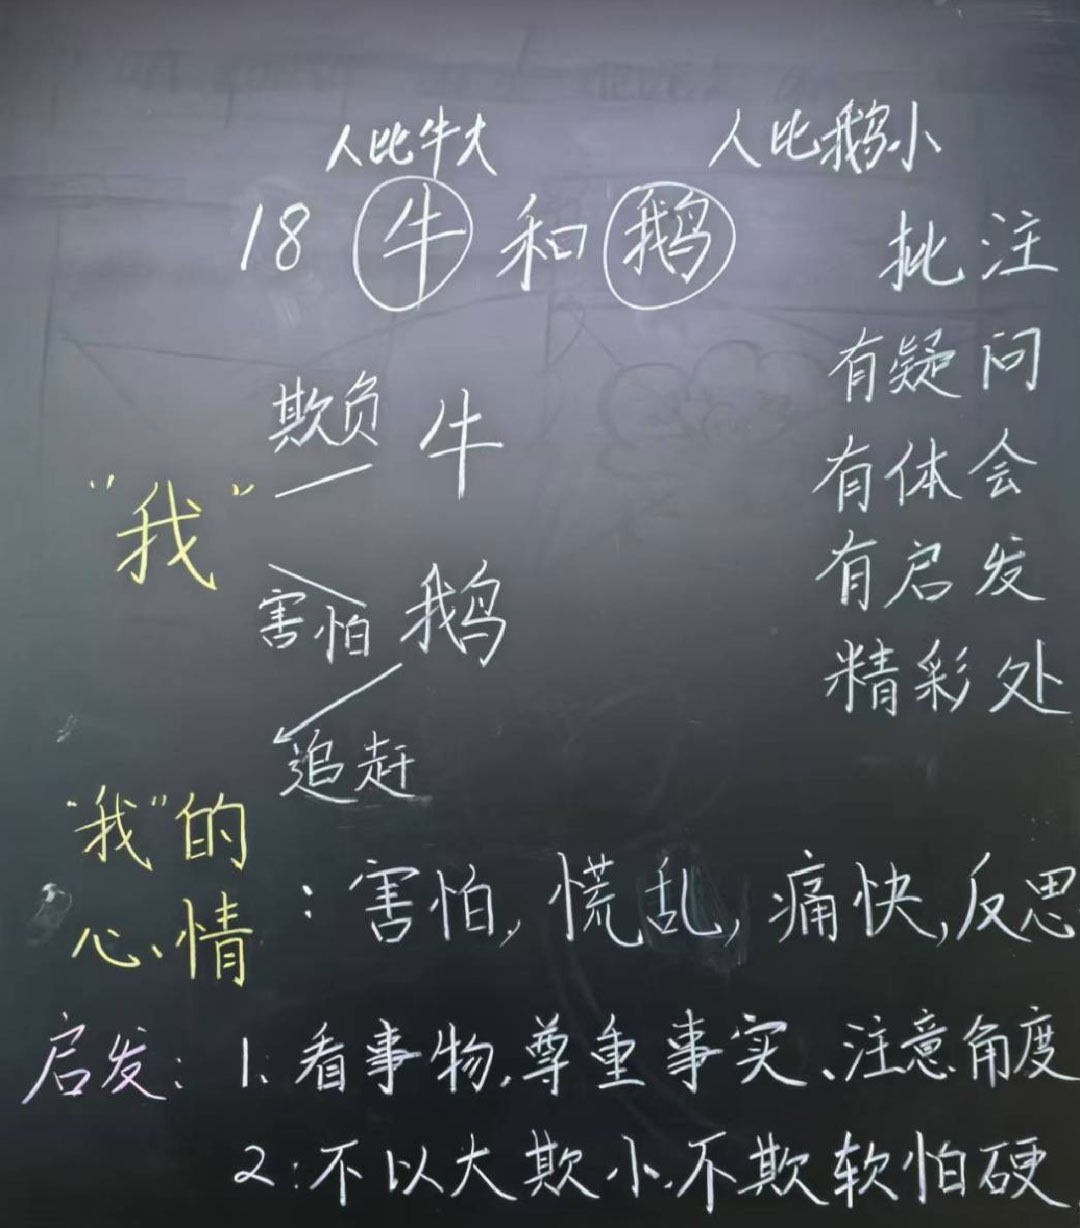 人比牛大 人比鹅小
18 牛 和 鹅
批注
有疑问
有体会
有启发
精彩处
欺负 牛
“我”
害怕 鹅
追赶
“我”的
心情
：害怕，慌乱，痛快，反思
启发：1、看事物，尊重事实、注意角度
2：不以大欺小，不欺软怕硬